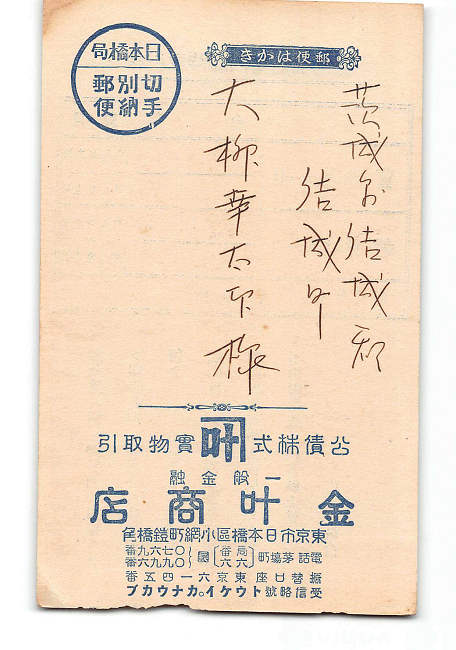 郵便はかき
日本橋局
切手別納郵便
茨城県結城郡
結城町
大柳幸太郎様
公債株式 叶 實物取引
一般金融
金叶商店
東京市日本橋區小網町鎧橋角
電話茅場町
局番
六六
〇七六九番
〇九九六番
振替口座東京六一四五番
受信略號トウケイ。カナウカブ